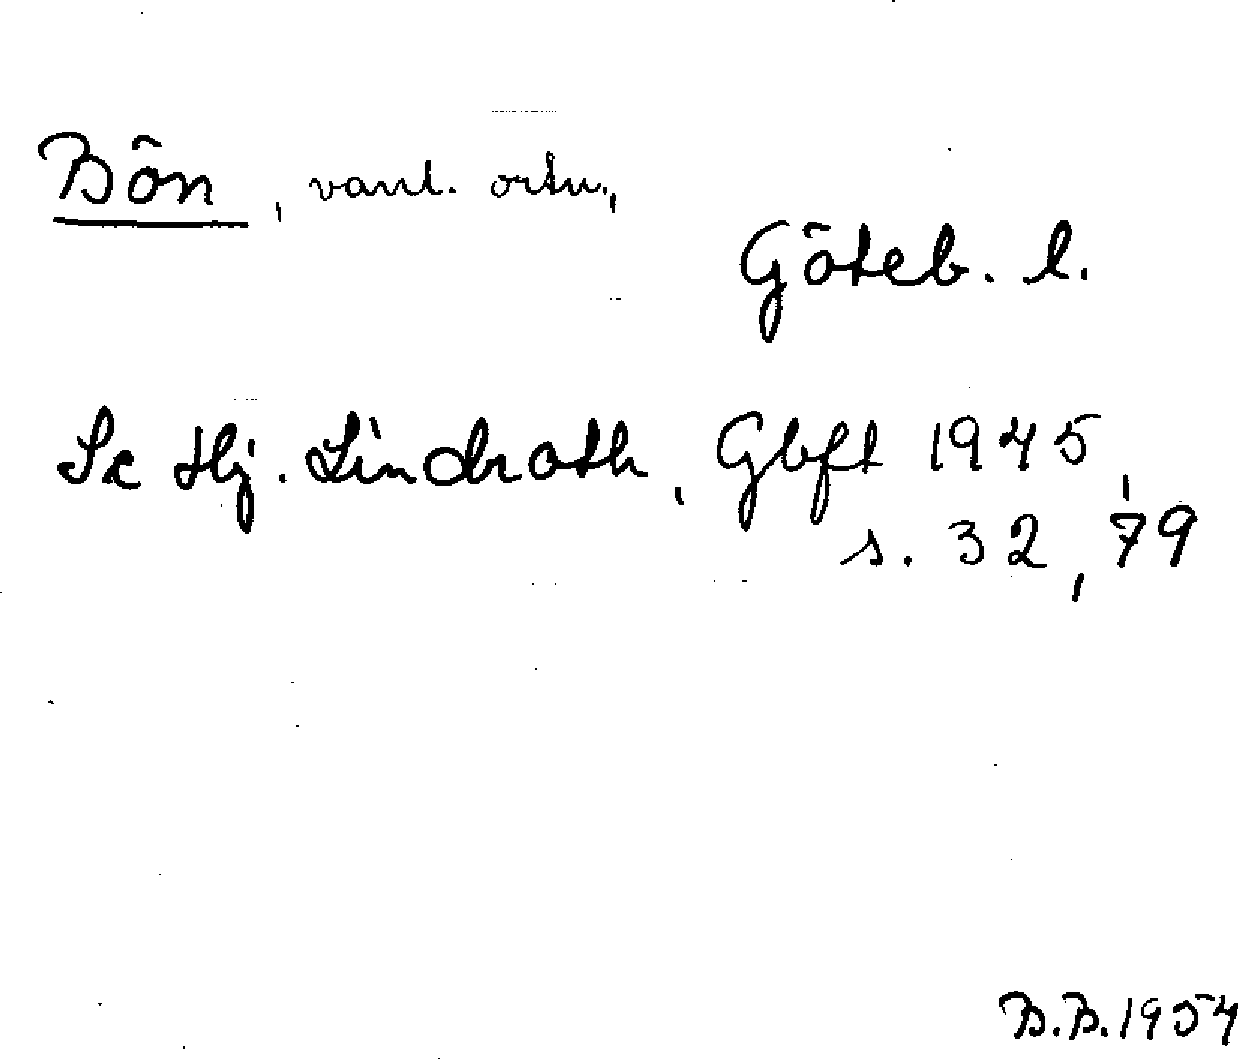 Bön, vanl. ortn.,
Göteb. l.
Se Hj. Lindroth, Gbft 1945,
s. 32, 79
B.B. 1954